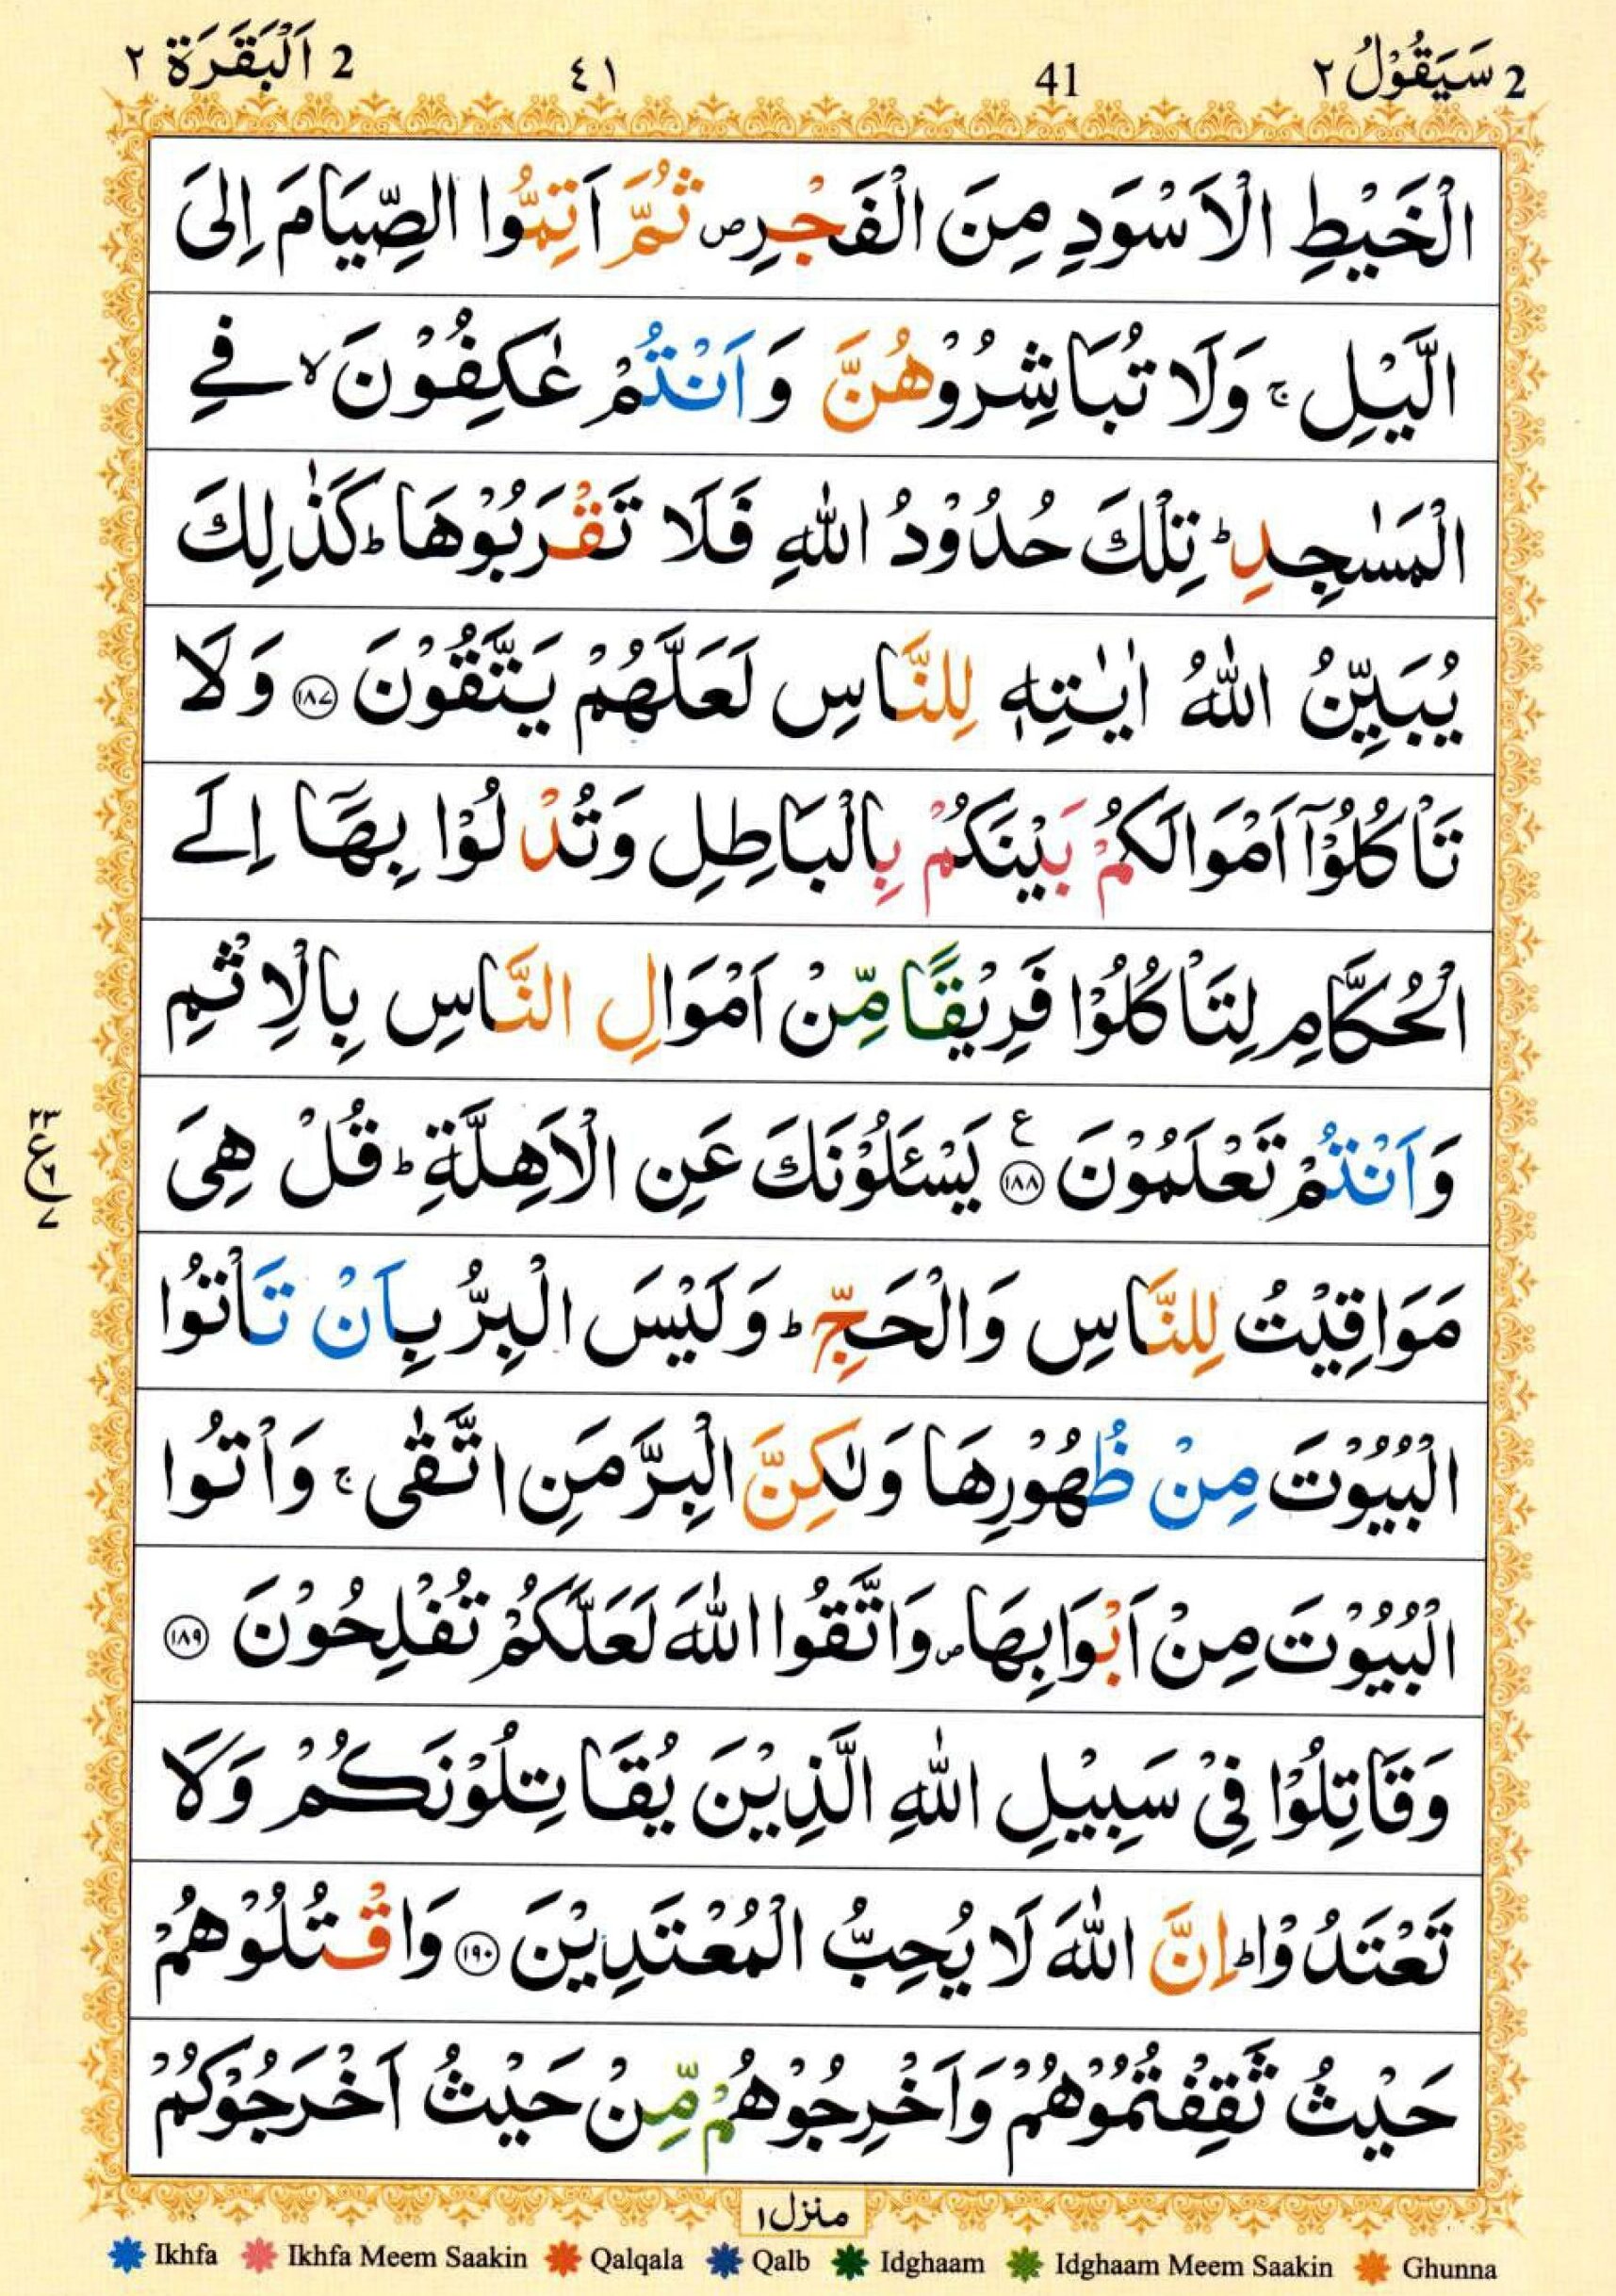 2 سَيَقُوْلُ ٢ 41 ٤١ 2 اَلْبَقَرَة ٢
الْخَيْطِ الْاَسْوَدِ مِنَ الْفَجْرِ ۪ ثُمَّ اَتِمُّوا الصِّيَامَ اِلَى
الَّيْلِ ۚ وَلَا تُبَاشِرُوْهُنَّ وَاَنْتُمْ عٰكِفُوْنَ ۙ فِے
الْمَسٰجِدِ ؕ تِلْكَ حُدُوْدُ اللّٰهِ فَلَا تَقْرَبُوْهَا ؕ كَذٰلِكَ
يُبَيِّنُ اللّٰهُ اٰيٰتِهٖ لِلنَّاسِ لَعَلَّهُمْ يَتَّقُوْنَ ﴿۱۸۷﴾ وَلَا
تَاْكُلُوْۤا اَمْوَالَكُمْ بَيْنَكُمْ بِالْبَاطِلِ وَتُدْلُوْا بِهَاۤ اِلَے
الْحُكَّامِ لِتَاْكُلُوْا فَرِيْقًا مِّنْ اَمْوَالِ النَّاسِ بِالْاِثْمِ
وَاَنْتُمْ تَعْلَمُوْنَ ﴿۱۸۸﴾ ع يَسْـَٔلُوْنَكَ عَنِ الْاَهِلَّةِ ؕ قُلْ هِىَ
٢٣ ع ٦ ٧
مَوَاقِيْتُ لِلنَّاسِ وَالْحَجِّ ؕ وَلَيْسَ الْبِرُّ بِاَنْ تَاْتُوا
الْبُيُوْتَ مِنْ ظُهُوْرِهَا وَلٰكِنَّ الْبِرَّ مَنِ اتَّقٰى ۚ وَاْتُوا
الْبُيُوْتَ مِنْ اَبْوَابِهَا ۪ وَاتَّقُوا اللّٰهَ لَعَلَّكُمْ تُفْلِحُوْنَ ﴿۱۸۹﴾
وَقَاتِلُوْا فِىْ سَبِيْلِ اللّٰهِ الَّذِيْنَ يُقَاتِلُوْنَكُمْ وَلَا
تَعْتَدُوْا ؕ اِنَّ اللّٰهَ لَا يُحِبُّ الْمُعْتَدِيْنَ ﴿۱۹۰﴾ وَاقْتُلُوْهُمْ
حَيْثُ ثَقِفْتُمُوْهُمْ وَاَخْرِجُوْهُمْ مِّنْ حَيْثُ اَخْرَجُوْكُمْ
منزل ۱
Ikhfa Ikhfa Meem Saakin Qalqala Qalb Idghaam Idghaam Meem Saakin Ghunna